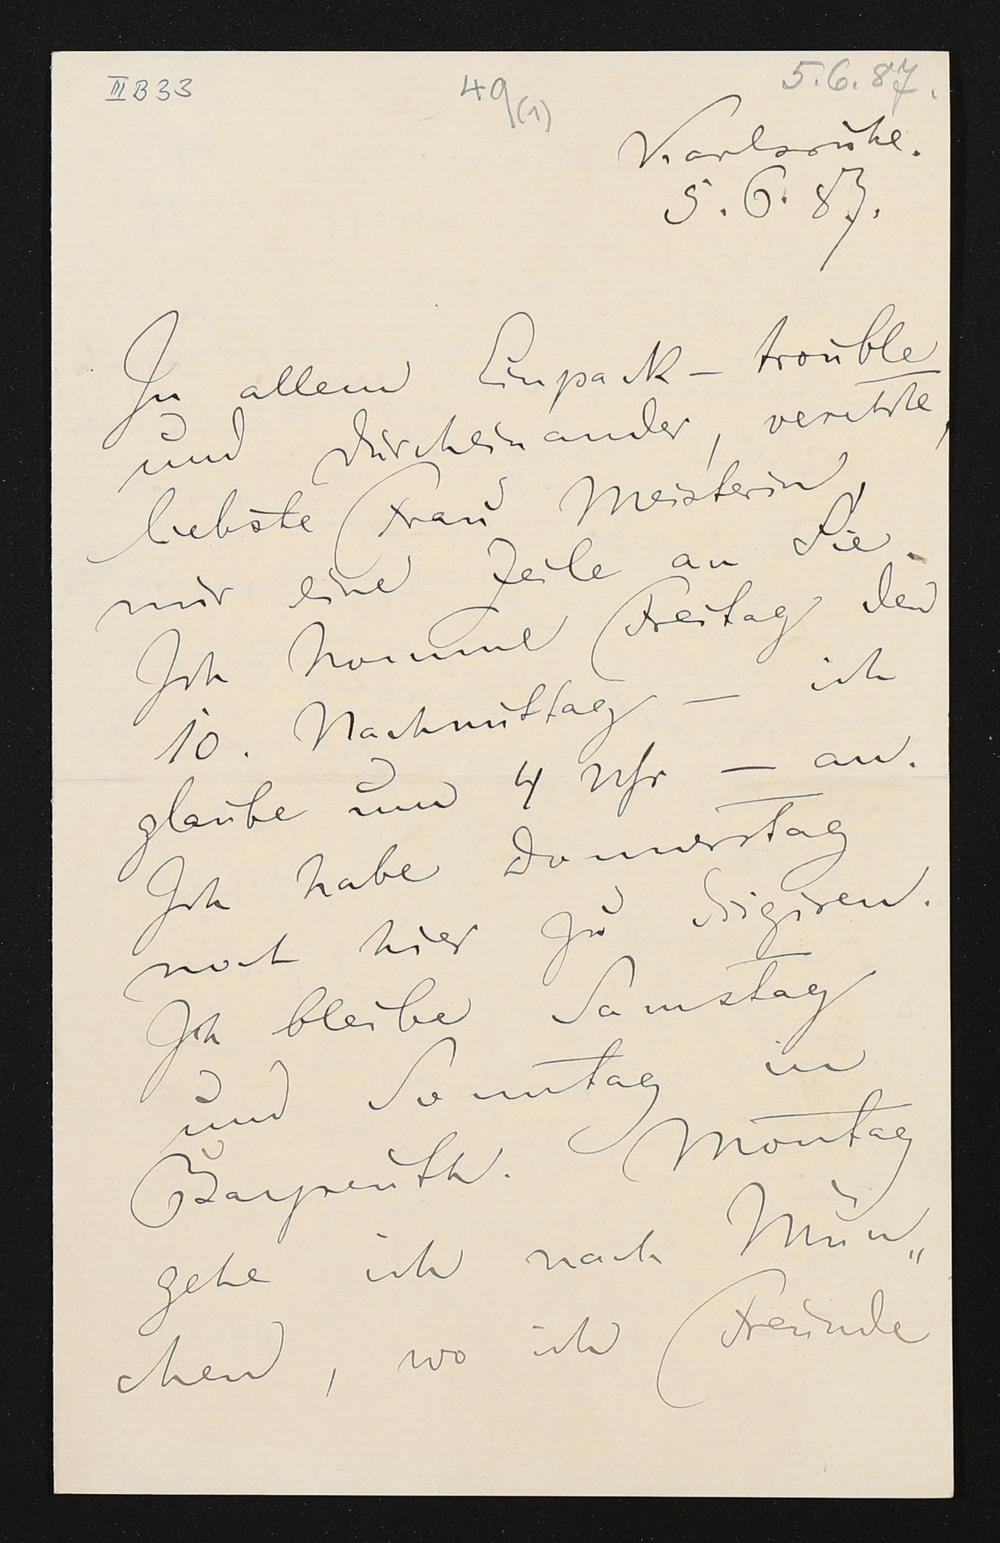 III B 33
49(1)
5.6.87.
Karlsruhe.
5.6.87.
In allem Einpack-trouble
und durcheinander, verehrte,
liebste Frau Meisterin,
nur eine Zeile an Sie.
Ich komme Freitag den
10. Nachmittag — ich
glaube um 4 Uhr — an.
Ich habe Donnerstag
noch hier zu dirigiren.
Ich bleibe Samstag
und Sonntag in
Bayreuth. Montag
gehe ich nach Mün„
chen, wo ich Freunde